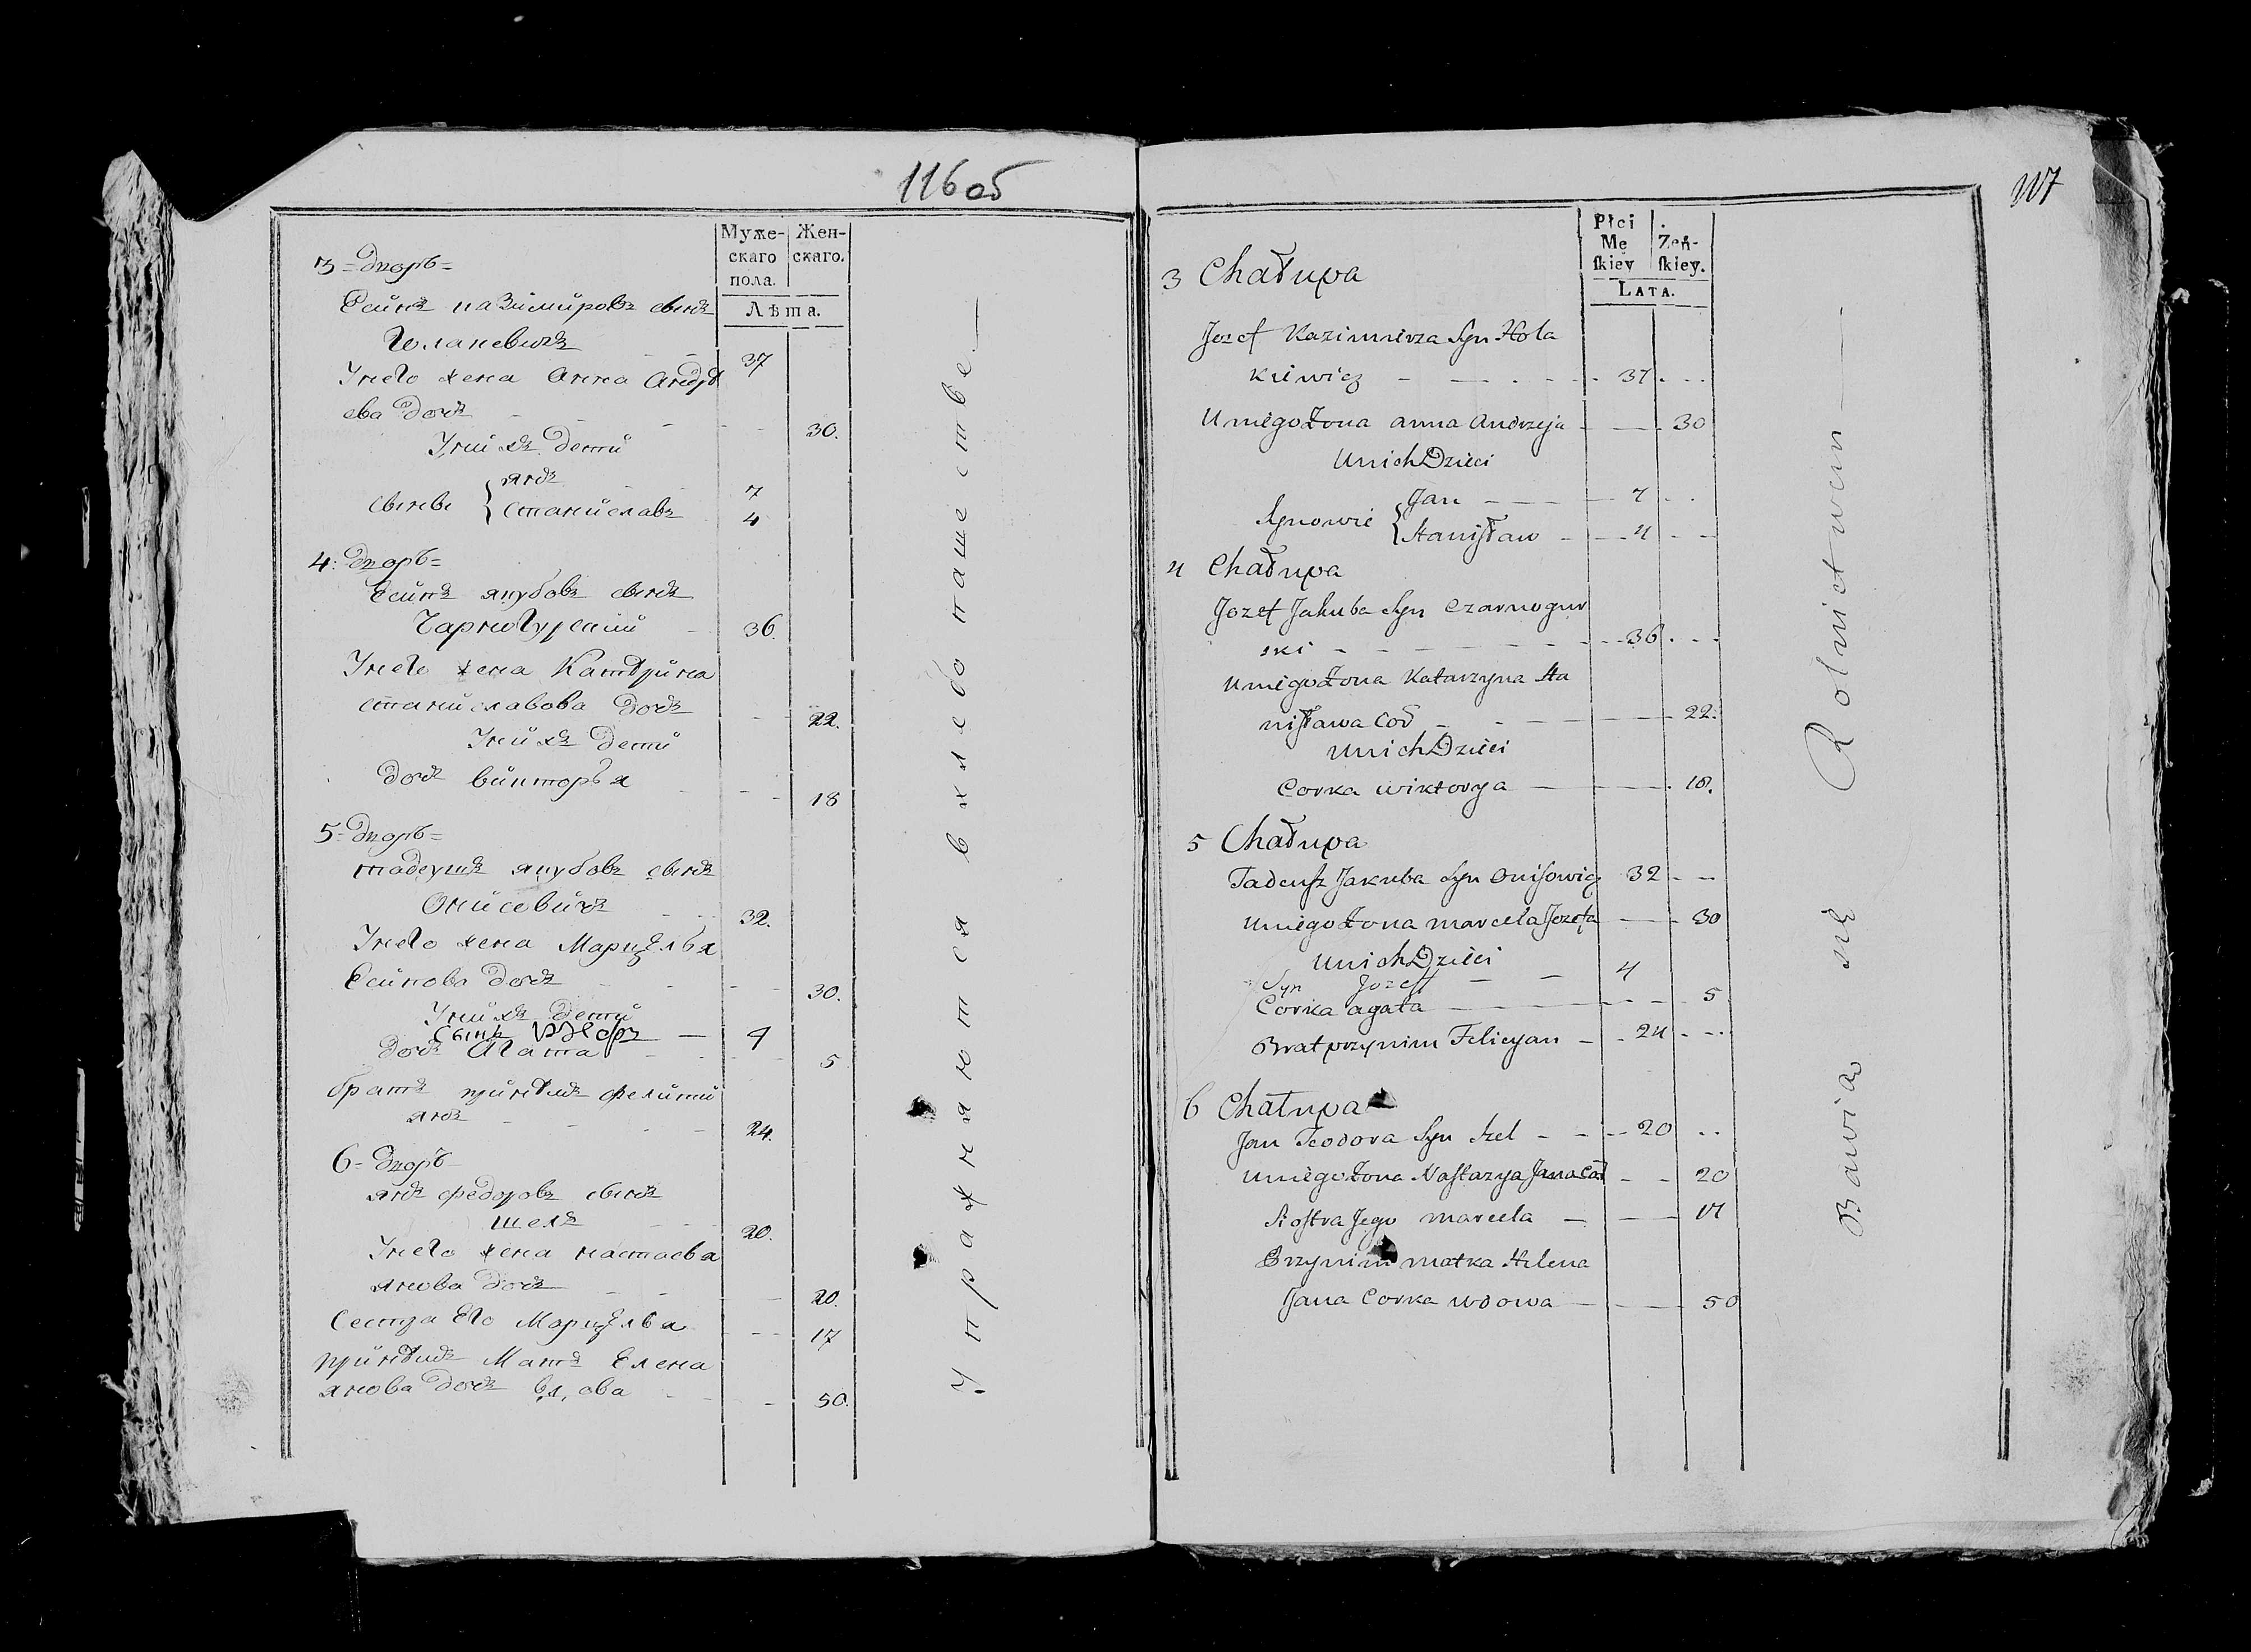 116 об
Муже-
скаго
пола.
Жен-
скаго.
Лѣта.
3 = Дворъ =
Есипъ Казимировъ сынъ
37
У него жена Анна Андрѣ
ева дочь
30.
У нихъ дети
сынове { янъ
7
Станиславъ
4
4. Дворъ =
Есипъ якубовъ сынъ
Чарногурский
36.
У него жена Катѣрина
Станиславова дочь
22.
У нихъ дети
дочь викторья
18
5 = Дворъ =
тадеушъ якубовъ сынъ
Онисевичъ
32.
У него жена Марцѣлья
Есипова дочь
30.
У нихъ дети
Сынъ Юзефъ — 4
дочь Агата
5
братъ принѣмъ фелици
янъ
24.
6 = Дворъ
янъ федоровъ сынъ
шелъ
20.
У него жена настасья
янова дочь
20.
Сестра Его Марцѣлья
17
принѣмъ Мать Елена
янова дочь вдова
50.
Упражняются в хлебопашестве —
117
Płci
Mę
ſkiey
Żeń-
ſkiey.
LATA.
3 Chałupa
Jozef Kazimierza Syn Hola
kiewicz 37
U niego Żona anna Andrzeja 30
U nich Dzieci
Synowie { Jan 7
Staniſław 4
4 Chałupa
Jozef Jakuba Syn Czarnogur
ski 36
U niego Żona Katarzyna Sta
niſława Coł 22.
U nich Dzieci
Corka wiktorya 18.
5 Chałupa
Tadeuſz Jakuba Syn Oniſowicz 32
U niego Żona marcela Jozefa 30
U nich Dzieci
Syn Jozeff 4
Corka agata 5
Brat przy nim Felicyan 24
6 Chałupa
Jan Teodora Syn Szel 20
U niego Żona Naſtazya Jana Coł 20
Sioſtra Jego marcela 17
Przy nim matka Helena
Jana Corka wdowa 50
Bawią się Rolnictwem —